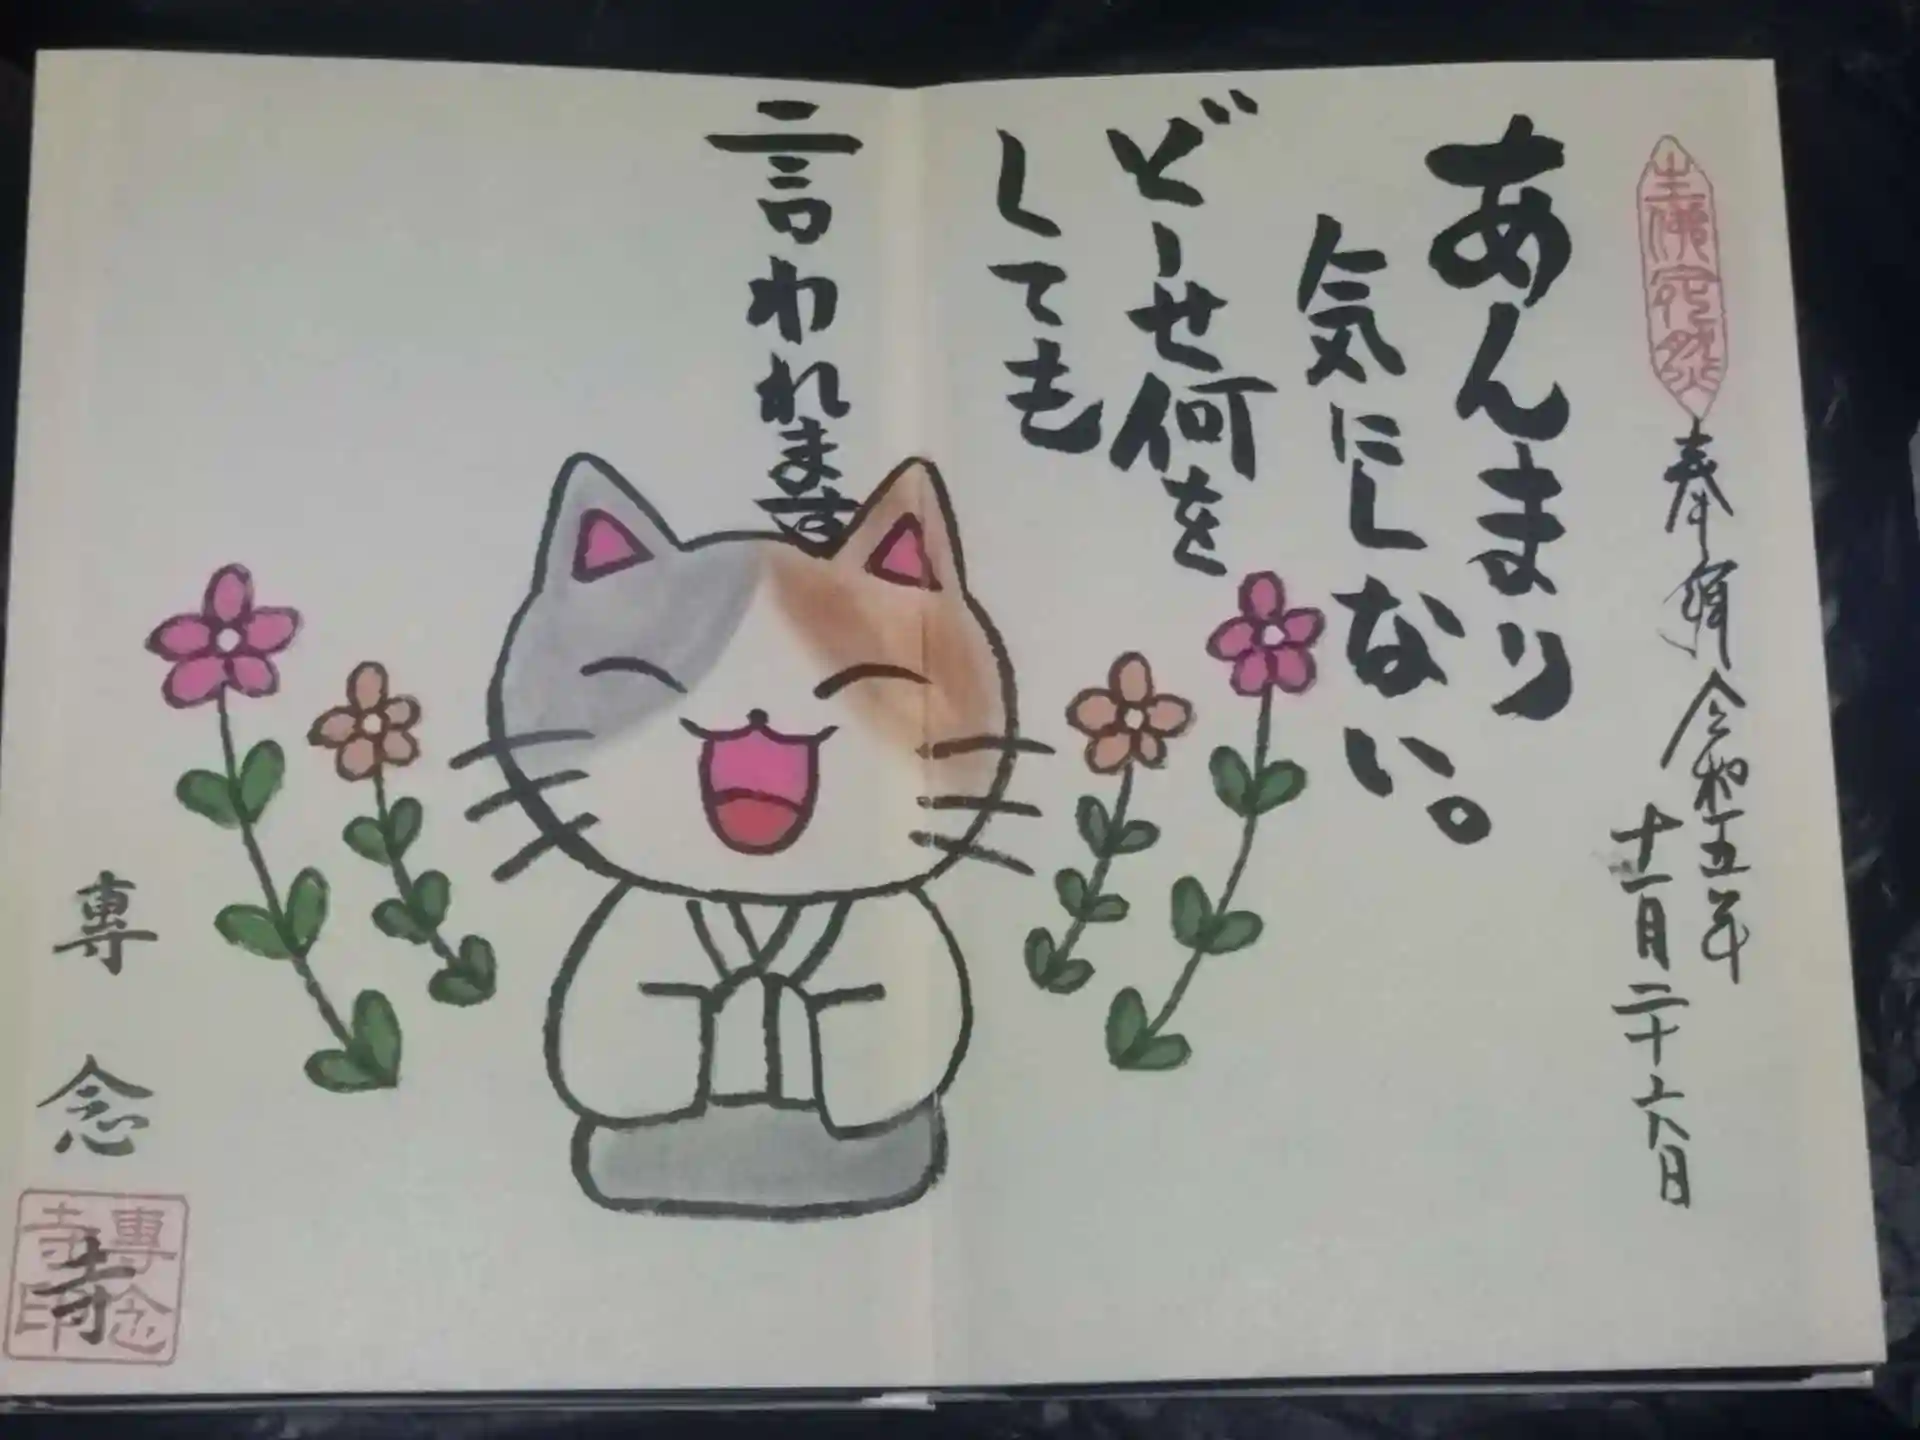 奉拝 令和五年
十一月二十六日
あんまり
気にしない。
どーせ何を
しても
言われます
専念
寺
專念
寺印